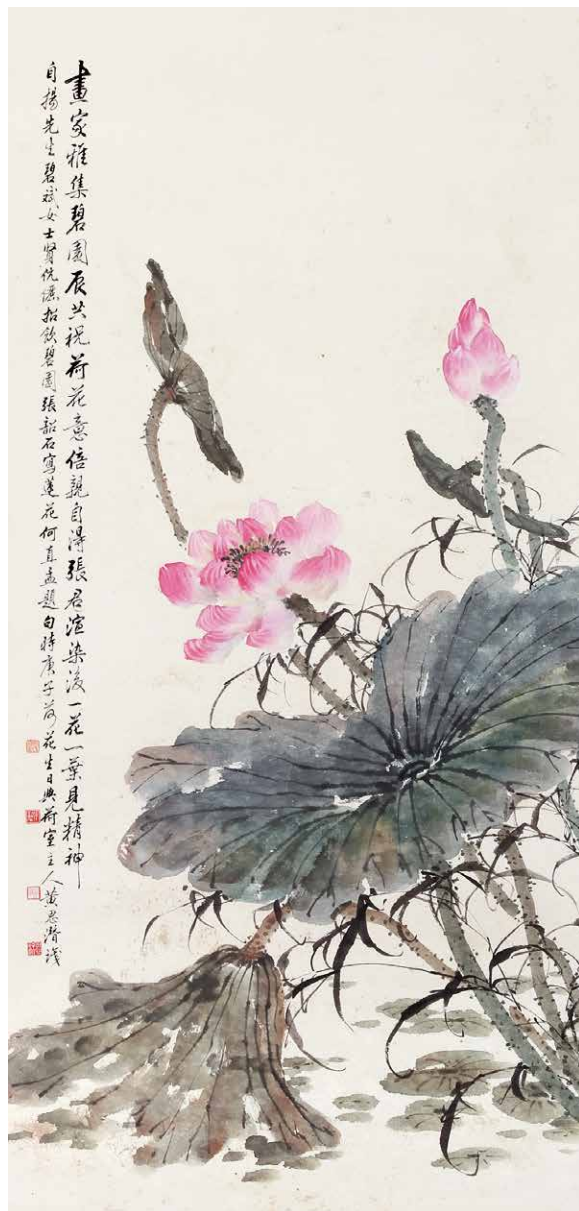 畫家雅集碧園辰共祝荷花意倍親自得張君渲染後一花一葉見精神
自揚先生碧城女士賢伉儷招飲碧園張韶石寫蓮花何直孟題句時庚子荷花生日與荷室主人黃思潛識